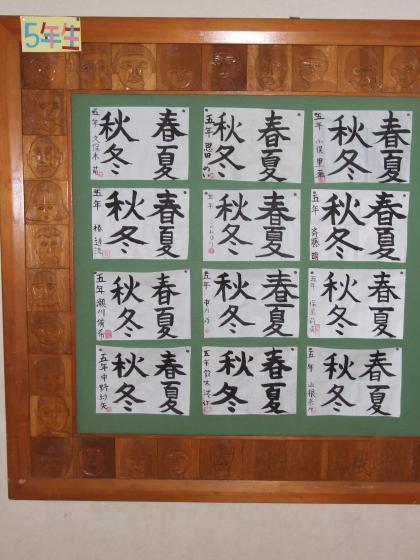 5年生
春夏
秋冬
五年 久保木
春夏
秋冬
五年 恩田 めい
春夏
秋冬
五年 小俣 里
春夏
秋冬
五年 椿
春夏
秋冬
五年
春夏
秋冬
五年 斉藤
春夏
秋冬
五年 瀬川 侑希
春夏
秋冬
五年
春夏
秋冬
五年
春夏
秋冬
五年 中野
春夏
秋冬
五年 鈴木
春夏
秋冬
五年 山根